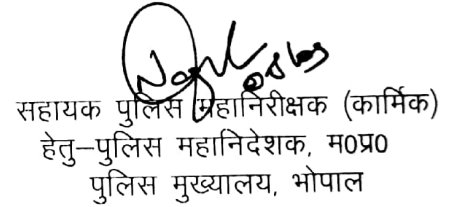 सहायक पुलिस महानिरीक्षक (कार्मिक)
हेतु–पुलिस महानिदेशक, म0प्र0
पुलिस मुख्यालय, भोपाल